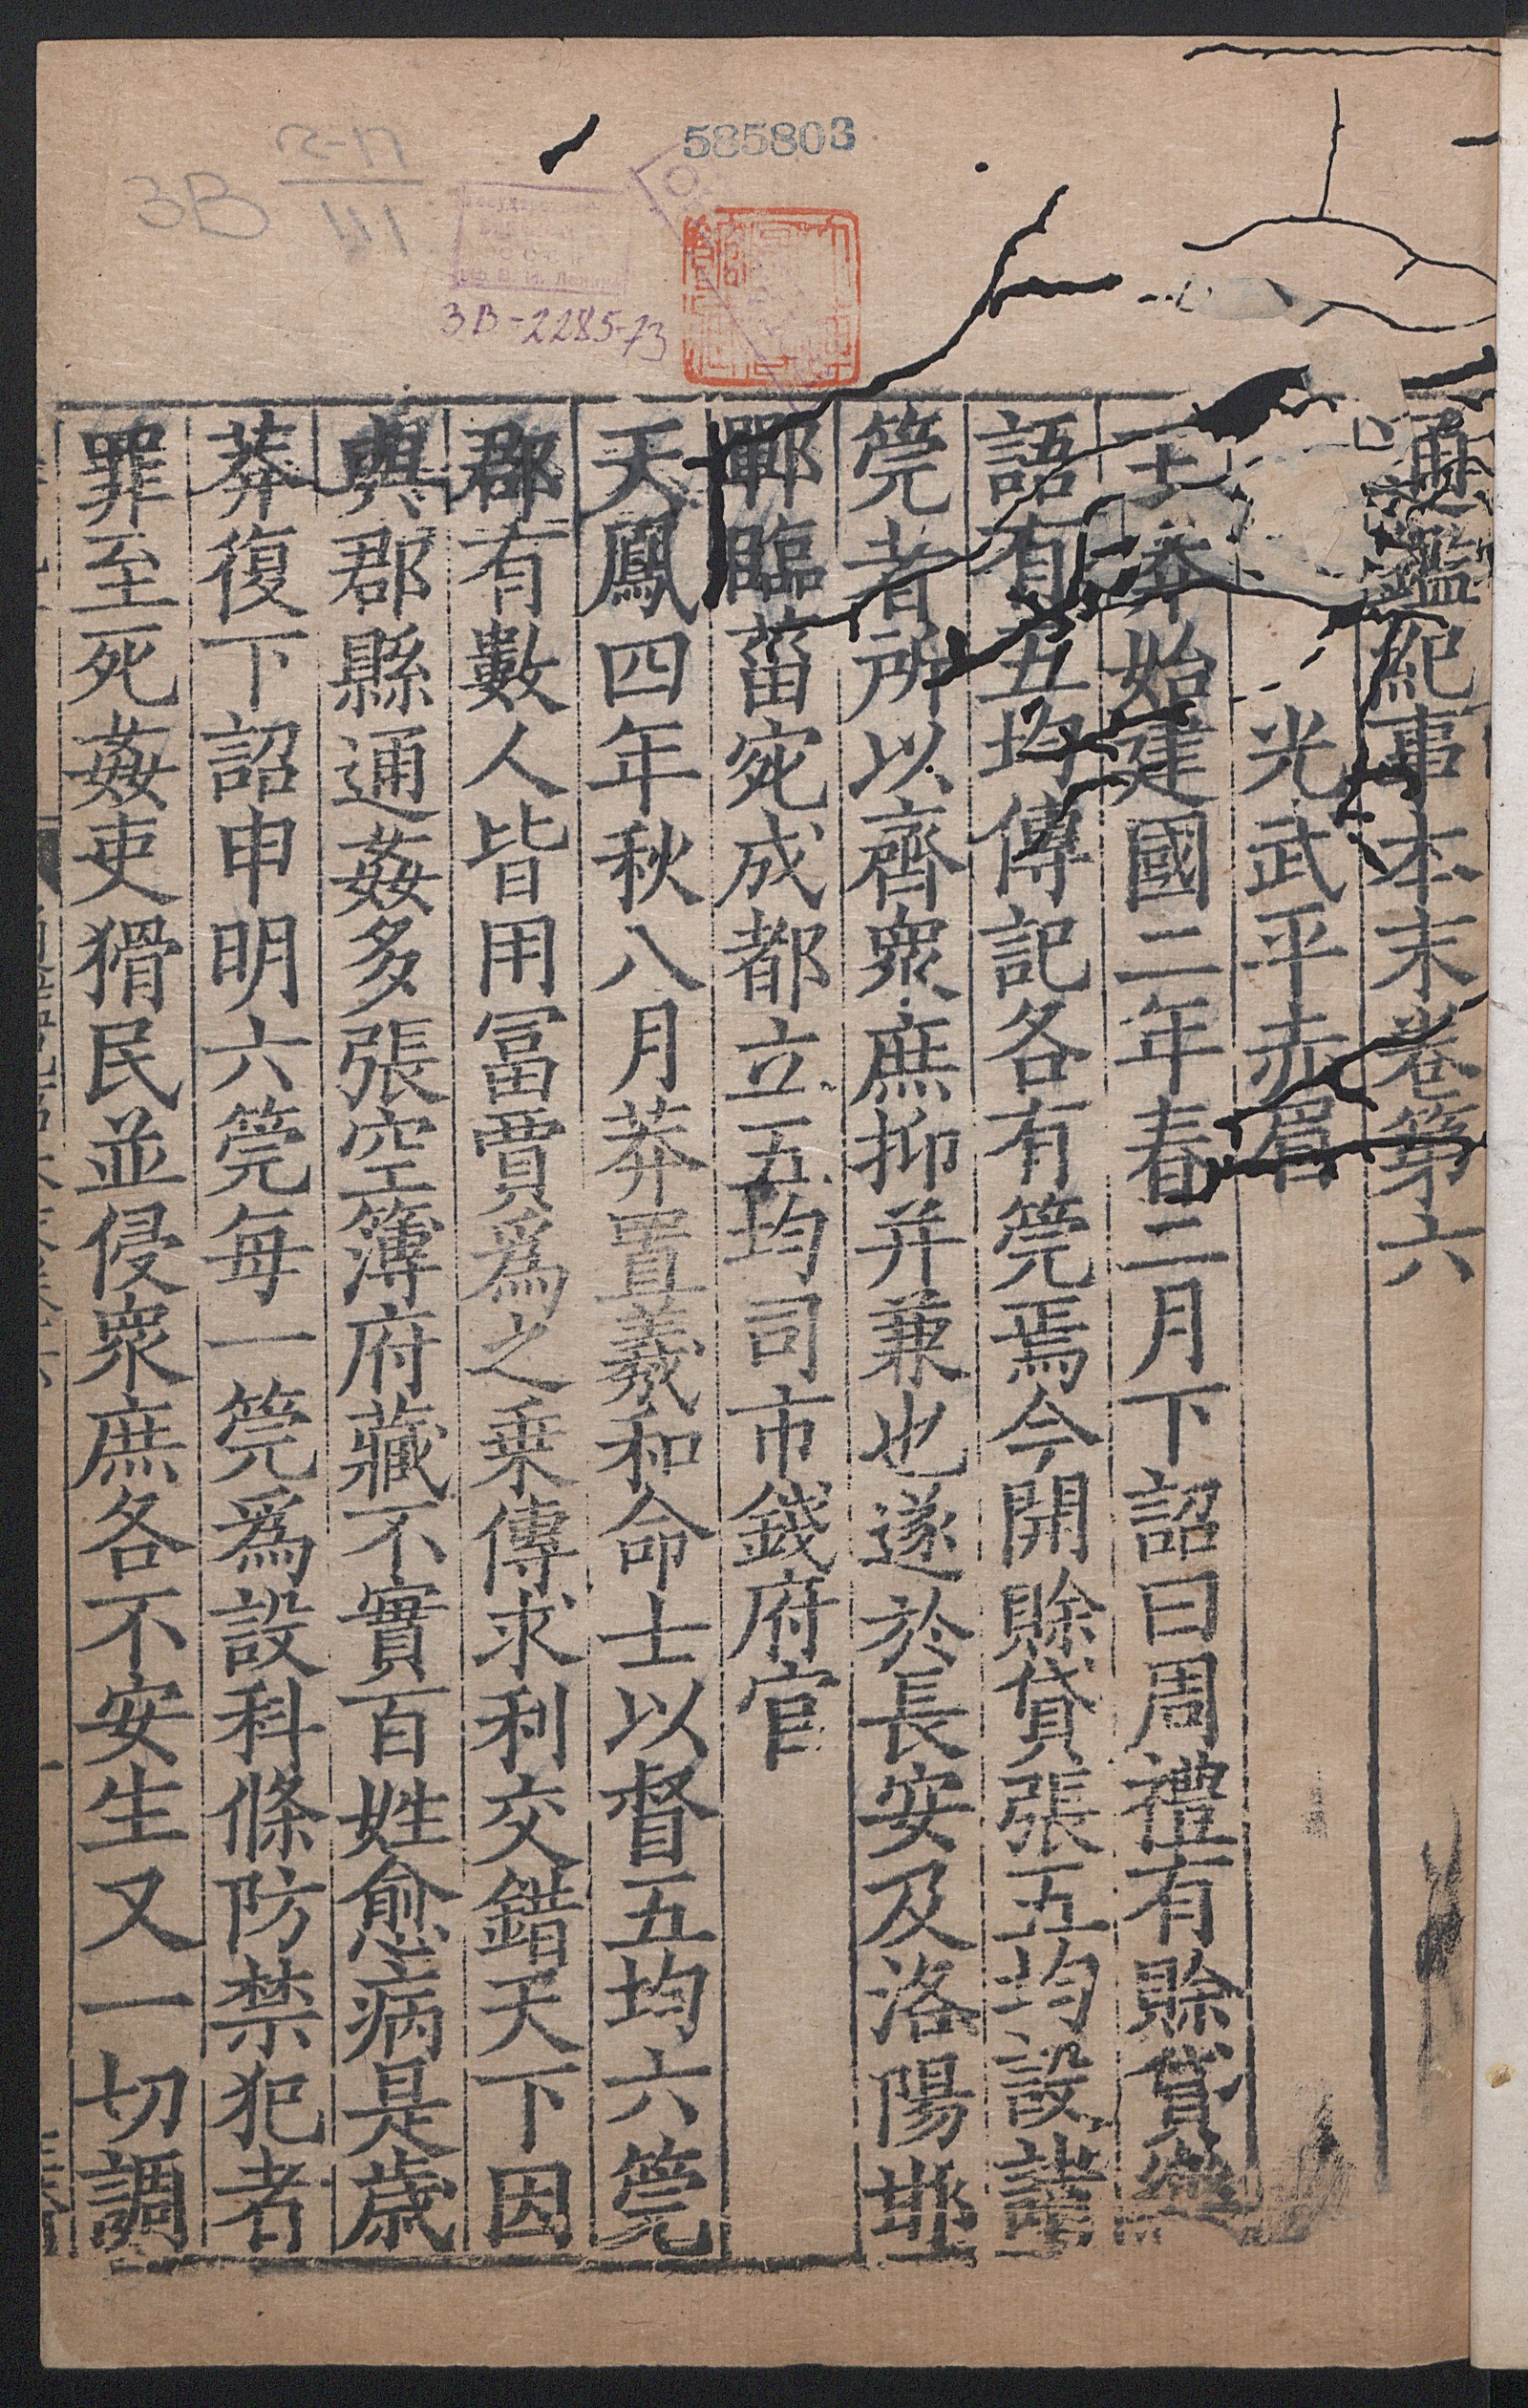 585803
3B-2285-73
通鑑紀事本末卷第六
光武平赤眉
王莽始建國二年春二月下詔曰周禮有賒貸樂
語有五均傳記各有筦焉今開賒貸張五均設諸
筦者所以齊衆庶抑并兼也遂於長安及洛陽邯
鄲臨菑宛成都立五均司市錢府官
天鳳四年秋八月莽置羲和命士以督五均六筦
郡有數人皆用富賈爲之乗傳求利交錯天下因
與郡縣通姦多張空簿府藏不實百姓愈病是歳
莽復下詔申明六筦每一筦爲設科條防禁犯者
罪至死姦吏猾民並侵衆庶各不安生又一切調